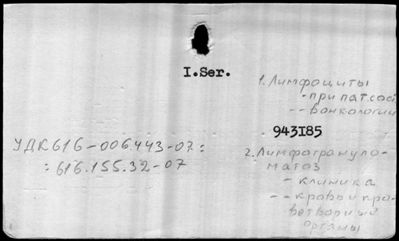 I.Ser.
1. Лимфоциты
- при пат. сост.
- - в онкологии
943I85
УДК 616-006.443-07:
: 616.155.32-07
2. Лимфогрануло-
матоз
- клиника
- - кровь и кро-
ветворные
органы